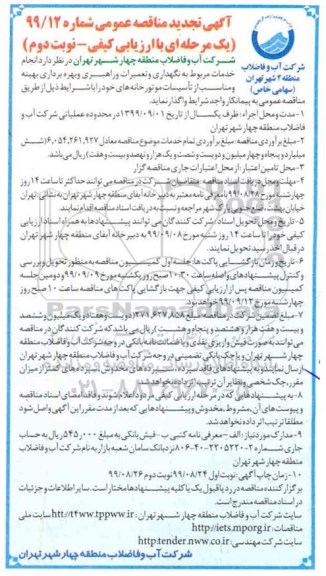 آگهی تجدید مناقصه عمومی شماره ۹۹/۱۲
(یک مرحله ای با ارزیابی کیفی - نوبت دوم)
شرکت آب و فاضلاب
منطقه ۴ شهر تهران
(سهامی خاص)
شرکت آب و فاضلاب منطقه چهار شهر تهران در نظر دارد انجام
خدمات مربوط به نگهداری و تعمیرات و راهبری و بهره برداری بهینه
و مناسب از تأسیسات موتورخانه های خود را با شرایط ذیل از طریق
مناقصه عمومی به پیمانکار واجد شرایط واگذار نماید.
۱- مدت و محل اجراء: ظرف یکسال از تاریخ ۱۳۹۹/۰۹/۰۱ در محدوده عملیاتی شرکت آب و
فاضلاب منطقه چهار شهر تهران
۲- مبلغ برآوردی مناقصه: مبلغ برآوردی تمام خدمات موضوع مناقصه معادل ۶,۰۵۴,۲۶۱,۹۲۷ (شش
میلیارد و پنجاه و چهار میلیون و دویست و شصت و یک هزار و نهصد و بیست و هفت) ریال می باشد.
۳- محل تامین اعتبار: از محل اعتبارات جاری مناقصه گزار
۴- مهلت و محل دریافت اسناد مناقصه: متقاضیان شرکت در مناقصه می توانند حداکثر تا ساعت ۱۴ روز
چهارشنبه مورخ ۹۹/۰۸/۲۸ با معرفی نامه معتبر به دبیرخانه آبفای منطقه چهار شهر تهران به نشانی: تهران
مراجعه و نسبت به دریافت اسناد مناقصه اقدام نمایند.
۵- تاریخ و محل تحویل اسناد: شرکت کنندگان می توانند پیشنهادها به همراه اسناد ارزیابی
کیفی خود را تا ساعت ۱۴ روز شنبه مورخ ۹۹/۰۹/۰۸ به دبیرخانه آبفای منطقه چهار شهر تهران
در قبال اخذ رسید تحویل نمایند.
۶- تاریخ و زمان بازگشایی پاکت ها: جلسه اول کمیسیون مناقصه به منظور تحویل و بررسی
و کنترل پیشنهادهای واصله ساعت ۱۰:۳۰ صبح روز یکشنبه مورخ ۹۹/۰۹/۰۹ و دومین جلسه
کمیسیون مناقصه پس از ارزیابی کیفی جهت بازگشایی پاکت های مناقصه ساعت ۱۰ صبح روز
چهارشنبه مورخ ۹۹/۰۹/۱۲ خواهد بود.
۷- مبلغ تضمین شرکت در مناقصه: مبلغ ۲۷۱,۶۲۷,۸۵۸ (دویست و هفتاد و یک میلیون و ششصد
و بیست و هفت هزار و هشتصد و پنجاه و هشت) ریال می باشد که شرکت کنندگان در مناقصه
می توانند به صورت فیش واریزی نقدی و یا ضمانت نامه بانکی در وجه شرکت آب و فاضلاب منطقه
چهار شهر تهران و یا چک بانکی تضمینی در وجه شرکت آب و فاضلاب منطقه چهار شهر تهران
ارسال نمایند. به پیشنهادهای فاقد سپرده، سپرده های مخدوش، سپرده های کمتر از میزان
مقرر، چک شخصی و نظایر آن ترتیب اثر داده نخواهد شد.
۸- به پیشنهادهایی که در مرحله ارزیابی کیفی مردود اعلام شوند و فاقد امضای اسناد مناقصه
و پیوست های آن، مشروط، مخدوش و پیشنهادهایی که بعد از مدت مقرر این آگهی واصل شود
مطلقا ترتیب اثر داده نخواهد شد.
۹- مدارک مورد نیاز: الف - معرفی نامه کتبی ب - فیش بانکی به مبلغ ۵۴۵,۰۰۰ ریال به حساب
نزد بانک سامان شعبه بازار به نام شرکت آب و فاضلاب
منطقه چهار شهر تهران
۱۰- زمان چاپ آگهی: نوبت اول ۹۹/۰۸/۲۴ نوبت دوم ۹۹/۰۸/۲۶
برگزار کننده مناقصه در رد یا قبول یک یا کلیه پیشنهادها مختار است. سایر اطلاعات و جزئیات
در اسناد مناقصه مندرج است.
سایت شرکت آب و فاضلاب منطقه چهار شهر تهران: http://t4ww.tppww.ir سایت ملی
مناقصات: http://iets.mporg.ir
سایت شرکت مهندسی: http:tender.nww.co.ir
شرکت آب و فاضلاب منطقه چهار شهر تهران